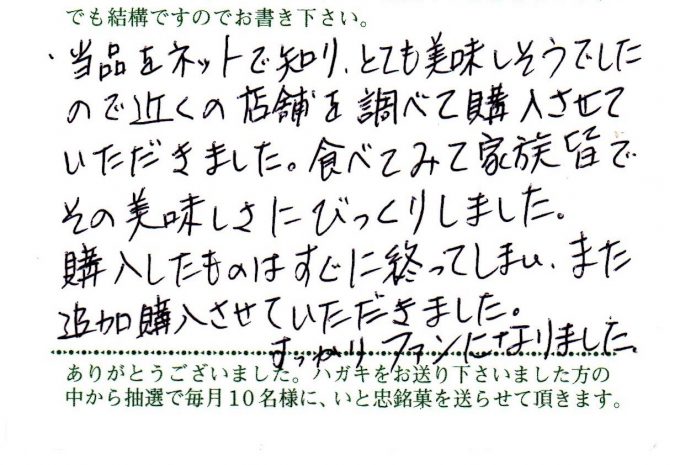 でも結構ですのでお書き下さい。
・当品をネットで知り、とても美味しそうでした
ので近くの店舗を調べて購入させて
いただきました。食べてみて家族皆で
その美味しさにびっくりしました。
購入したものはすぐに終ってしまい、また
追加購入させていただきました。
すっかりファンになりました。
ありがとうございました。ハガキをお送り下さいました方の
中から抽選で毎月10名様に、いと忠銘菓を送らせて頂きます。